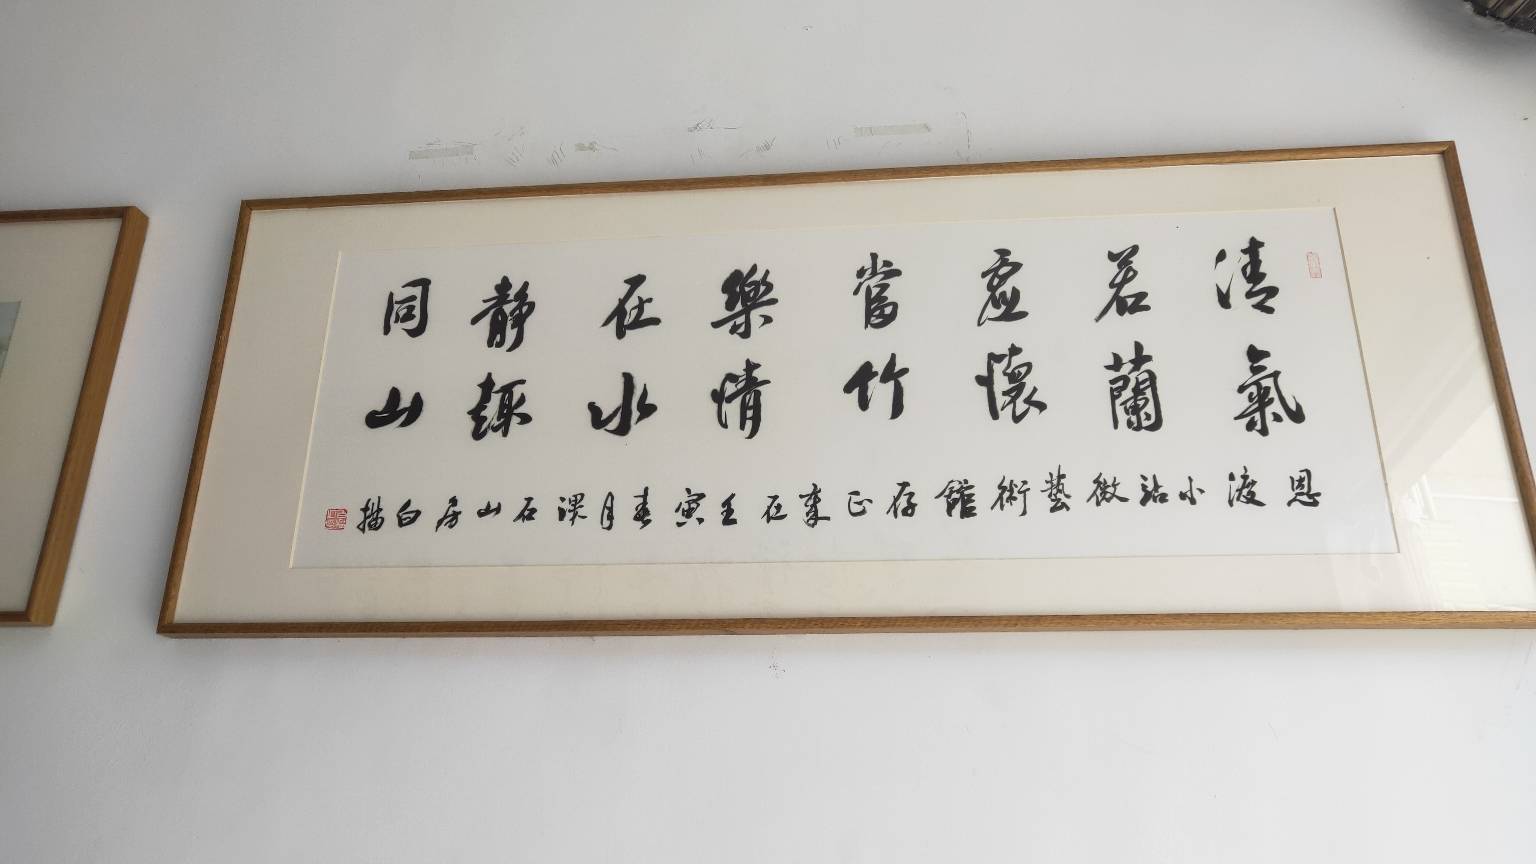 清氣
若蘭
虛懷
當竹
樂情
在水
靜趣
同山
恩渡小站微藝術館存正歲在壬寅春月漠石山房白描